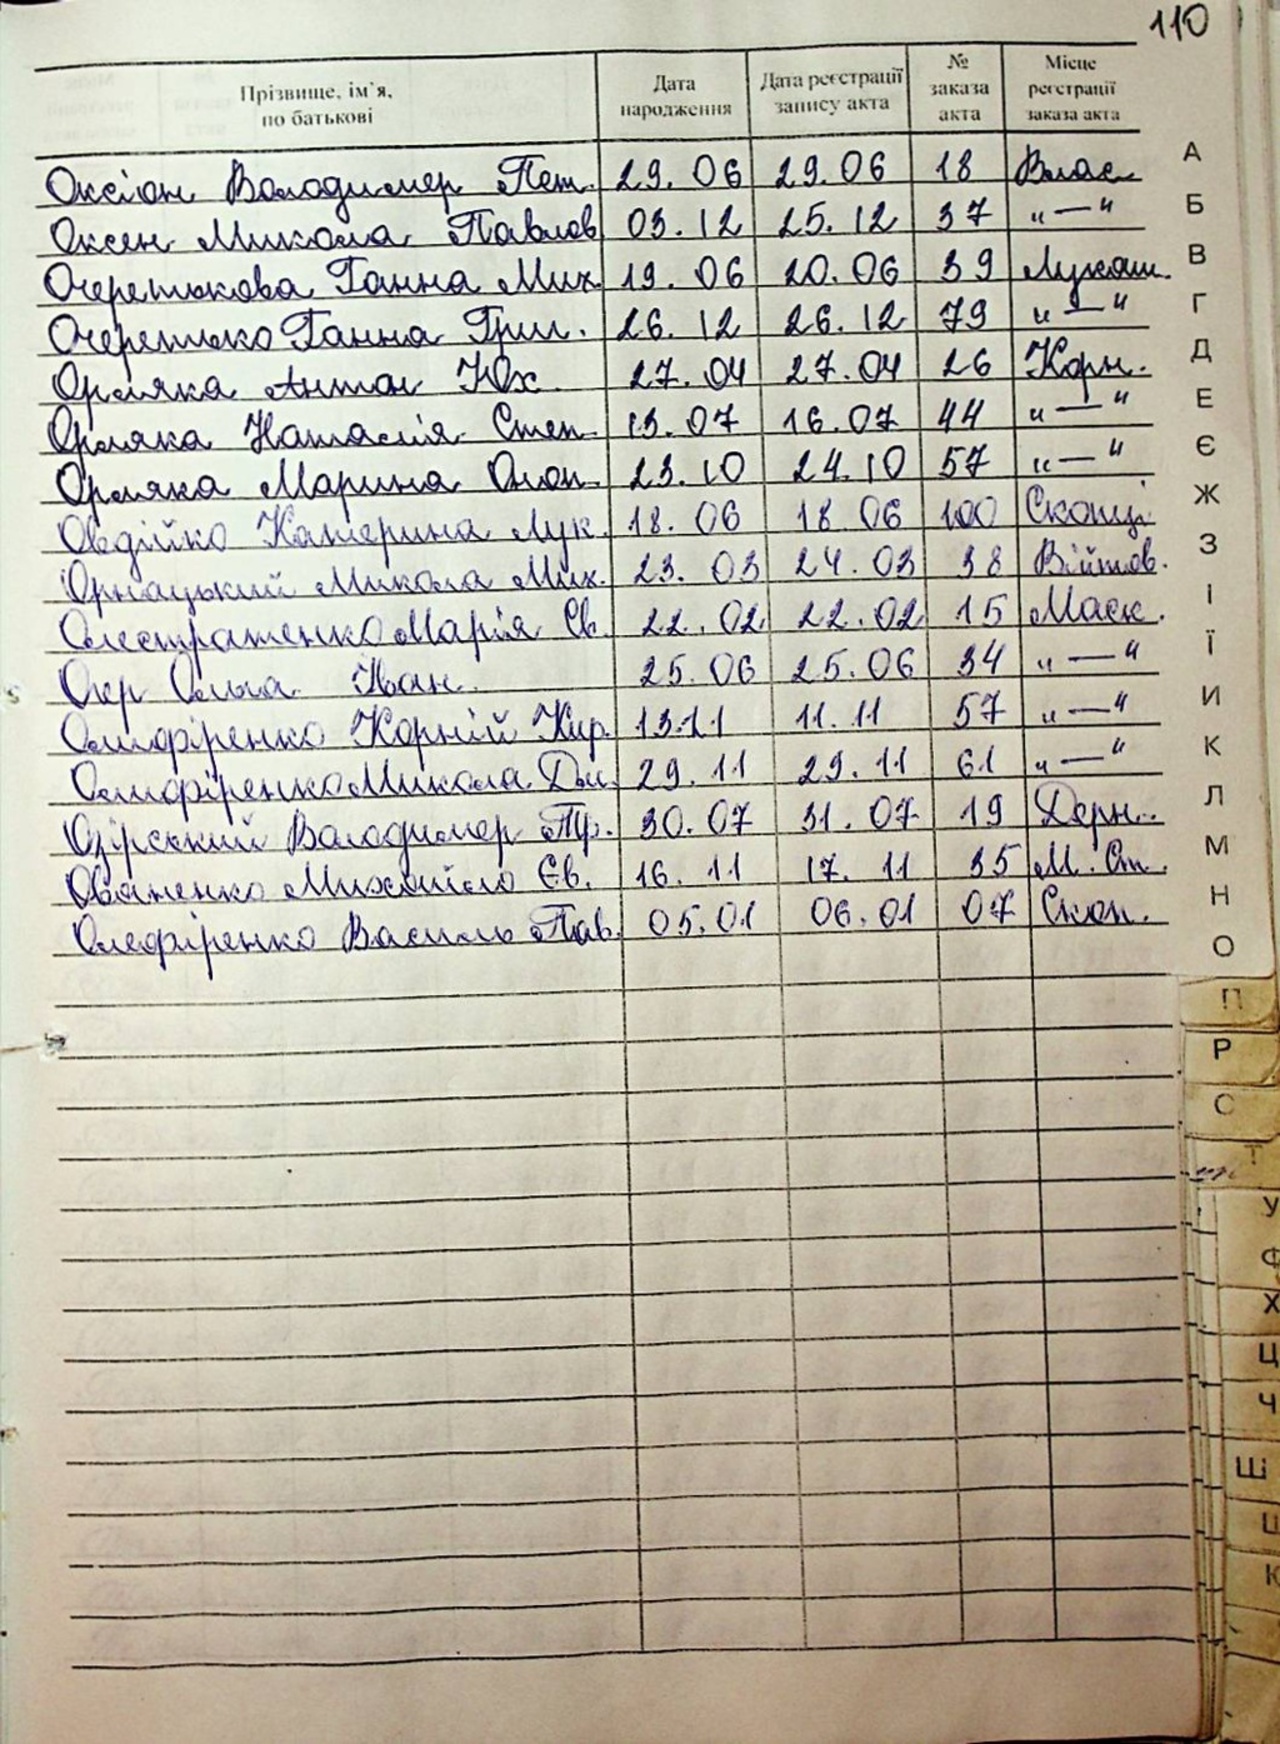 110
Прізвище, ім'я, по батькові Дата народження Дата реєстрації запису акта № заказа акта Місце реєстрації заказа акта
Оксіон Володимир Пет. 29.06 29.06 18 Влас
Оксен Микола Павлов 03.12 25.12 37 "—"
Очеретькова Ганна Мих. 19.06 20.06 39 Лукаш.
Очеретько Ганна Григ. 26.12 26.12 79 "—"
Орляка Антон Юх. 27.04 27.04 26 Корн.
Орляка Наталія Степ. 13.07 16.07 44 "—"
Орляка Марина Оноп. 23.10 24.10 57 "—"
Овдійко Катерина Лук. 18.06 18.06 100 Скопці
Орнацький Микола Мих. 23.03 24.03 38 Війтов.
Марія Єв. 22.02 22.02 15 Маск.
Окр Ольга Іван. 25.06 25.06 34 "—"
Олифіренко Корній Кир. 13.11 11.11 57 "—"
Олифіренко Микола Дм. 29.11 29.11 61 "—"
Озірський Володимер Тр. 30.07 31.07 19 Дерн.
Михайло Єв. 16.11 17.11 35 М. Ст.
Олефіренко Василь Пав. 05.01 06.01 07 Скоп.
А
Б
В
Г
Д
Е
Є
Ж
З
І
Ї
И
К
Л
М
Н
О
П
Р
С
Т
У
Ф
Х
Ц
Ч
Ш